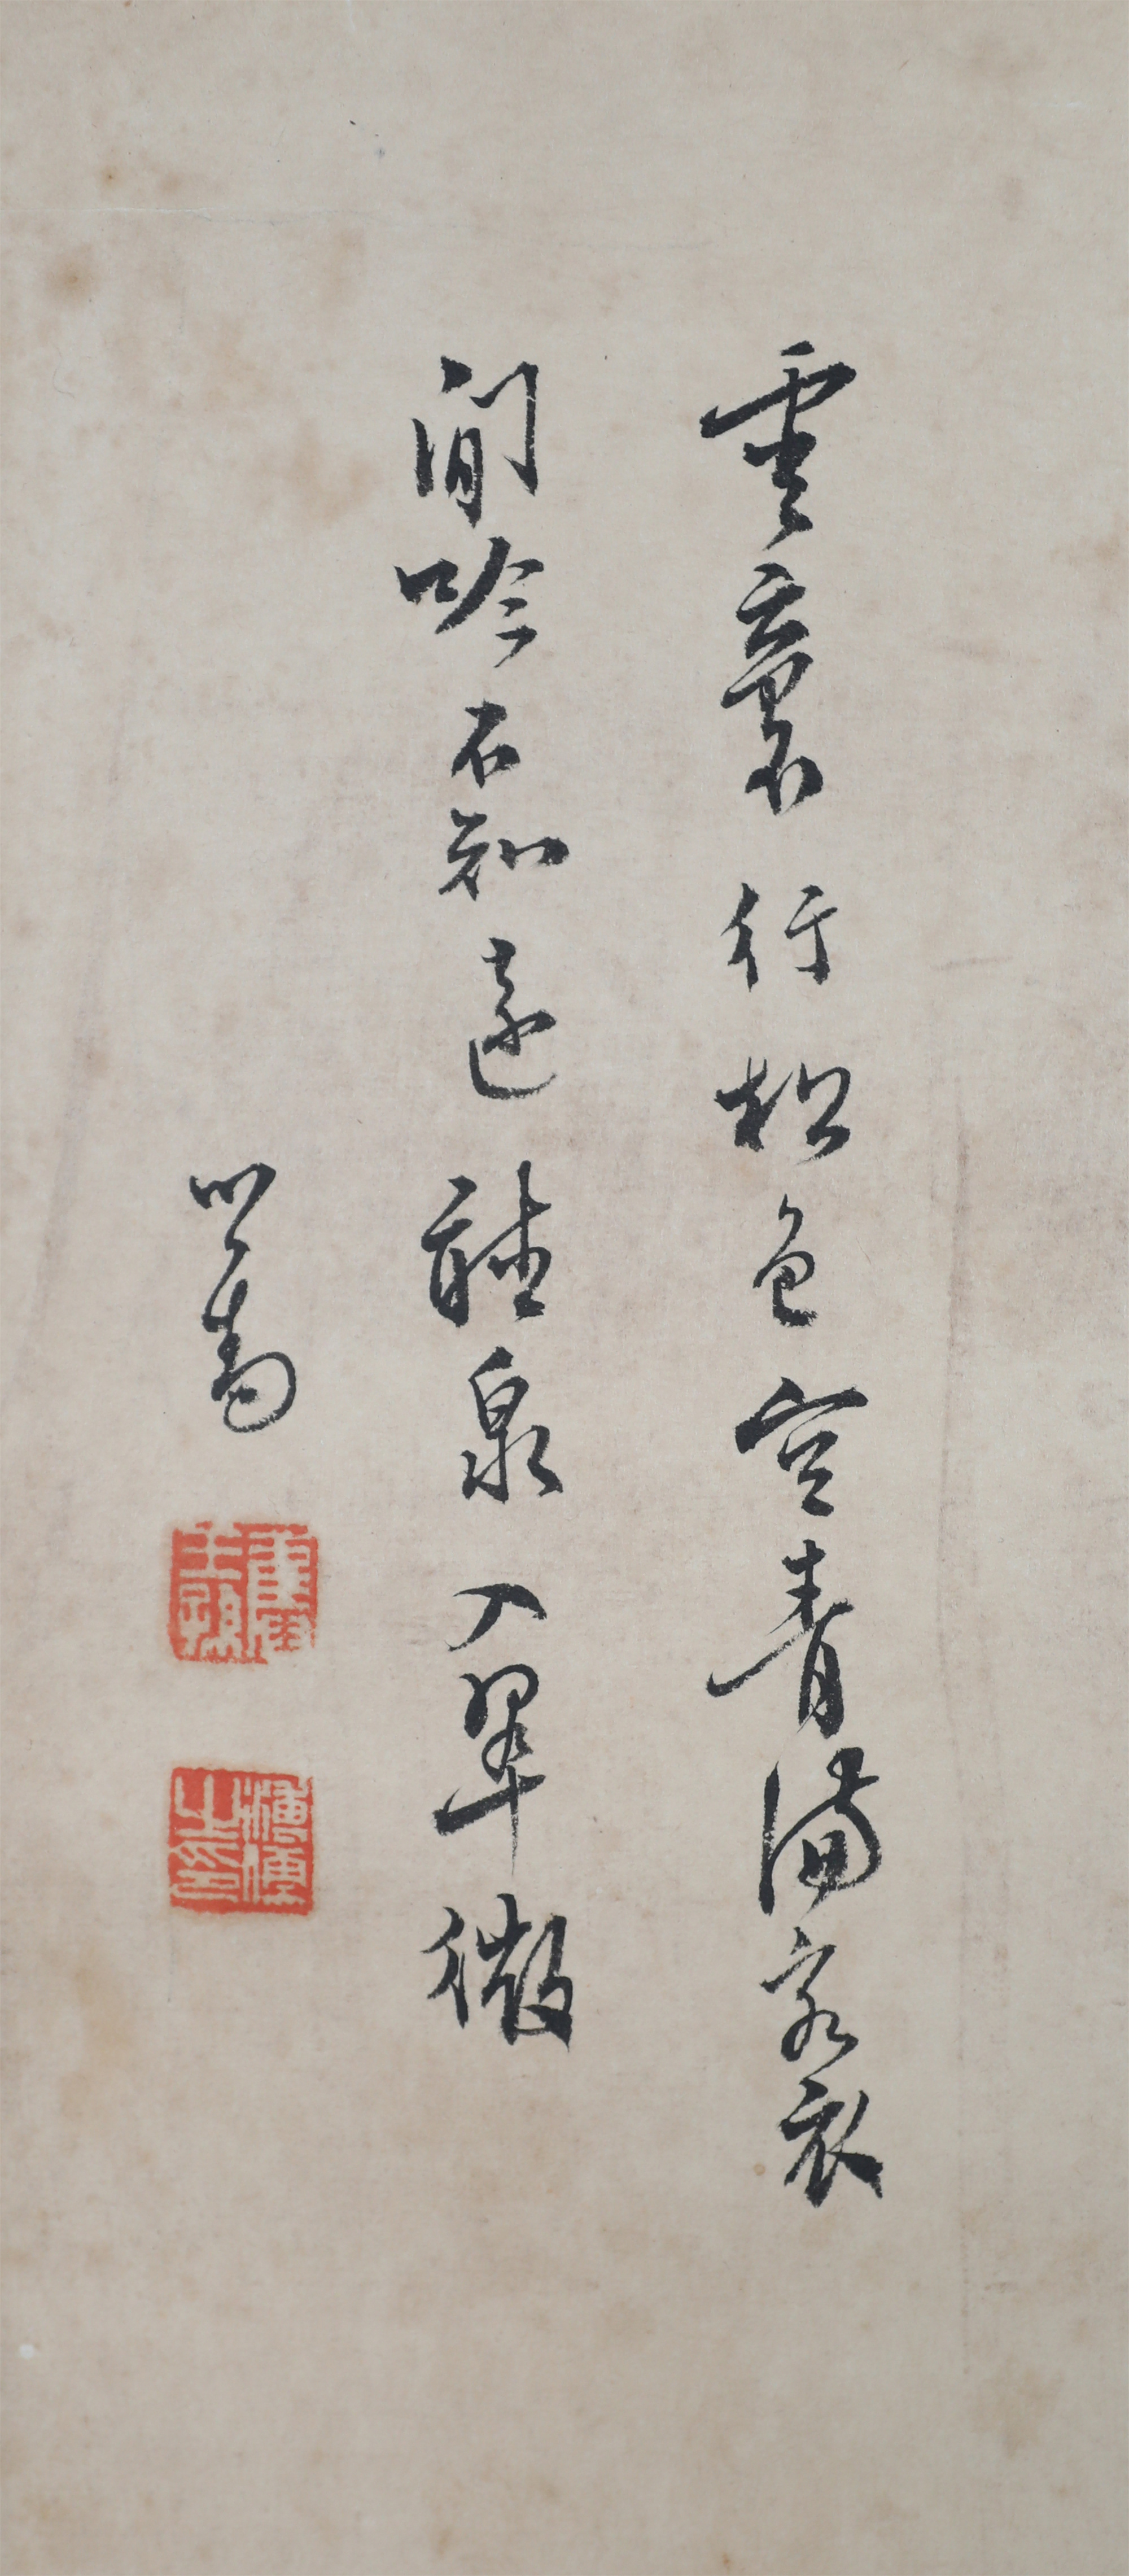 雲裏行松色空青滿客衣
閒吟不知遠聽泉入翠微
心畬
舊王孫
溥儒之印